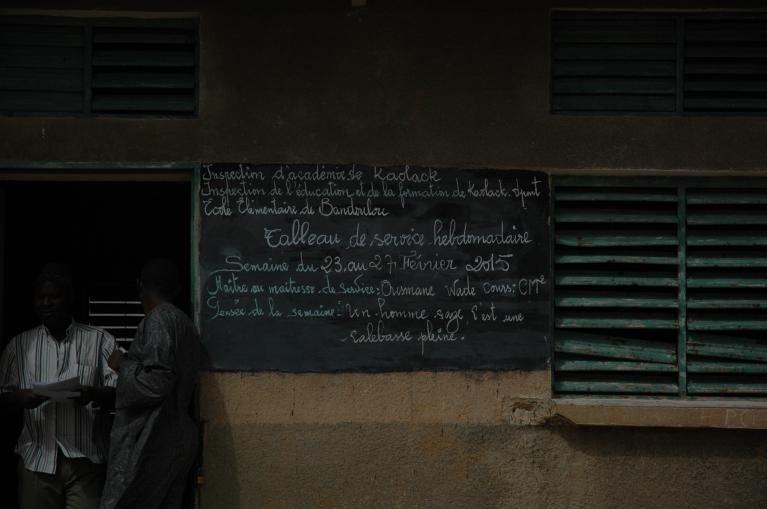 Inspection d'académie de Kaolack
Inspection de l'éducation et de la formation de Kaolack
Ecole Elémentaire de Bandoulou
Tableau de service hebdomadaire
Semaine du 23 au 27 Février 2015
Maître ou maîtresse de service: Ousmane Wade Cours:
Pensée de la semaine: Un homme sage, c'est une
calebasse pleine.